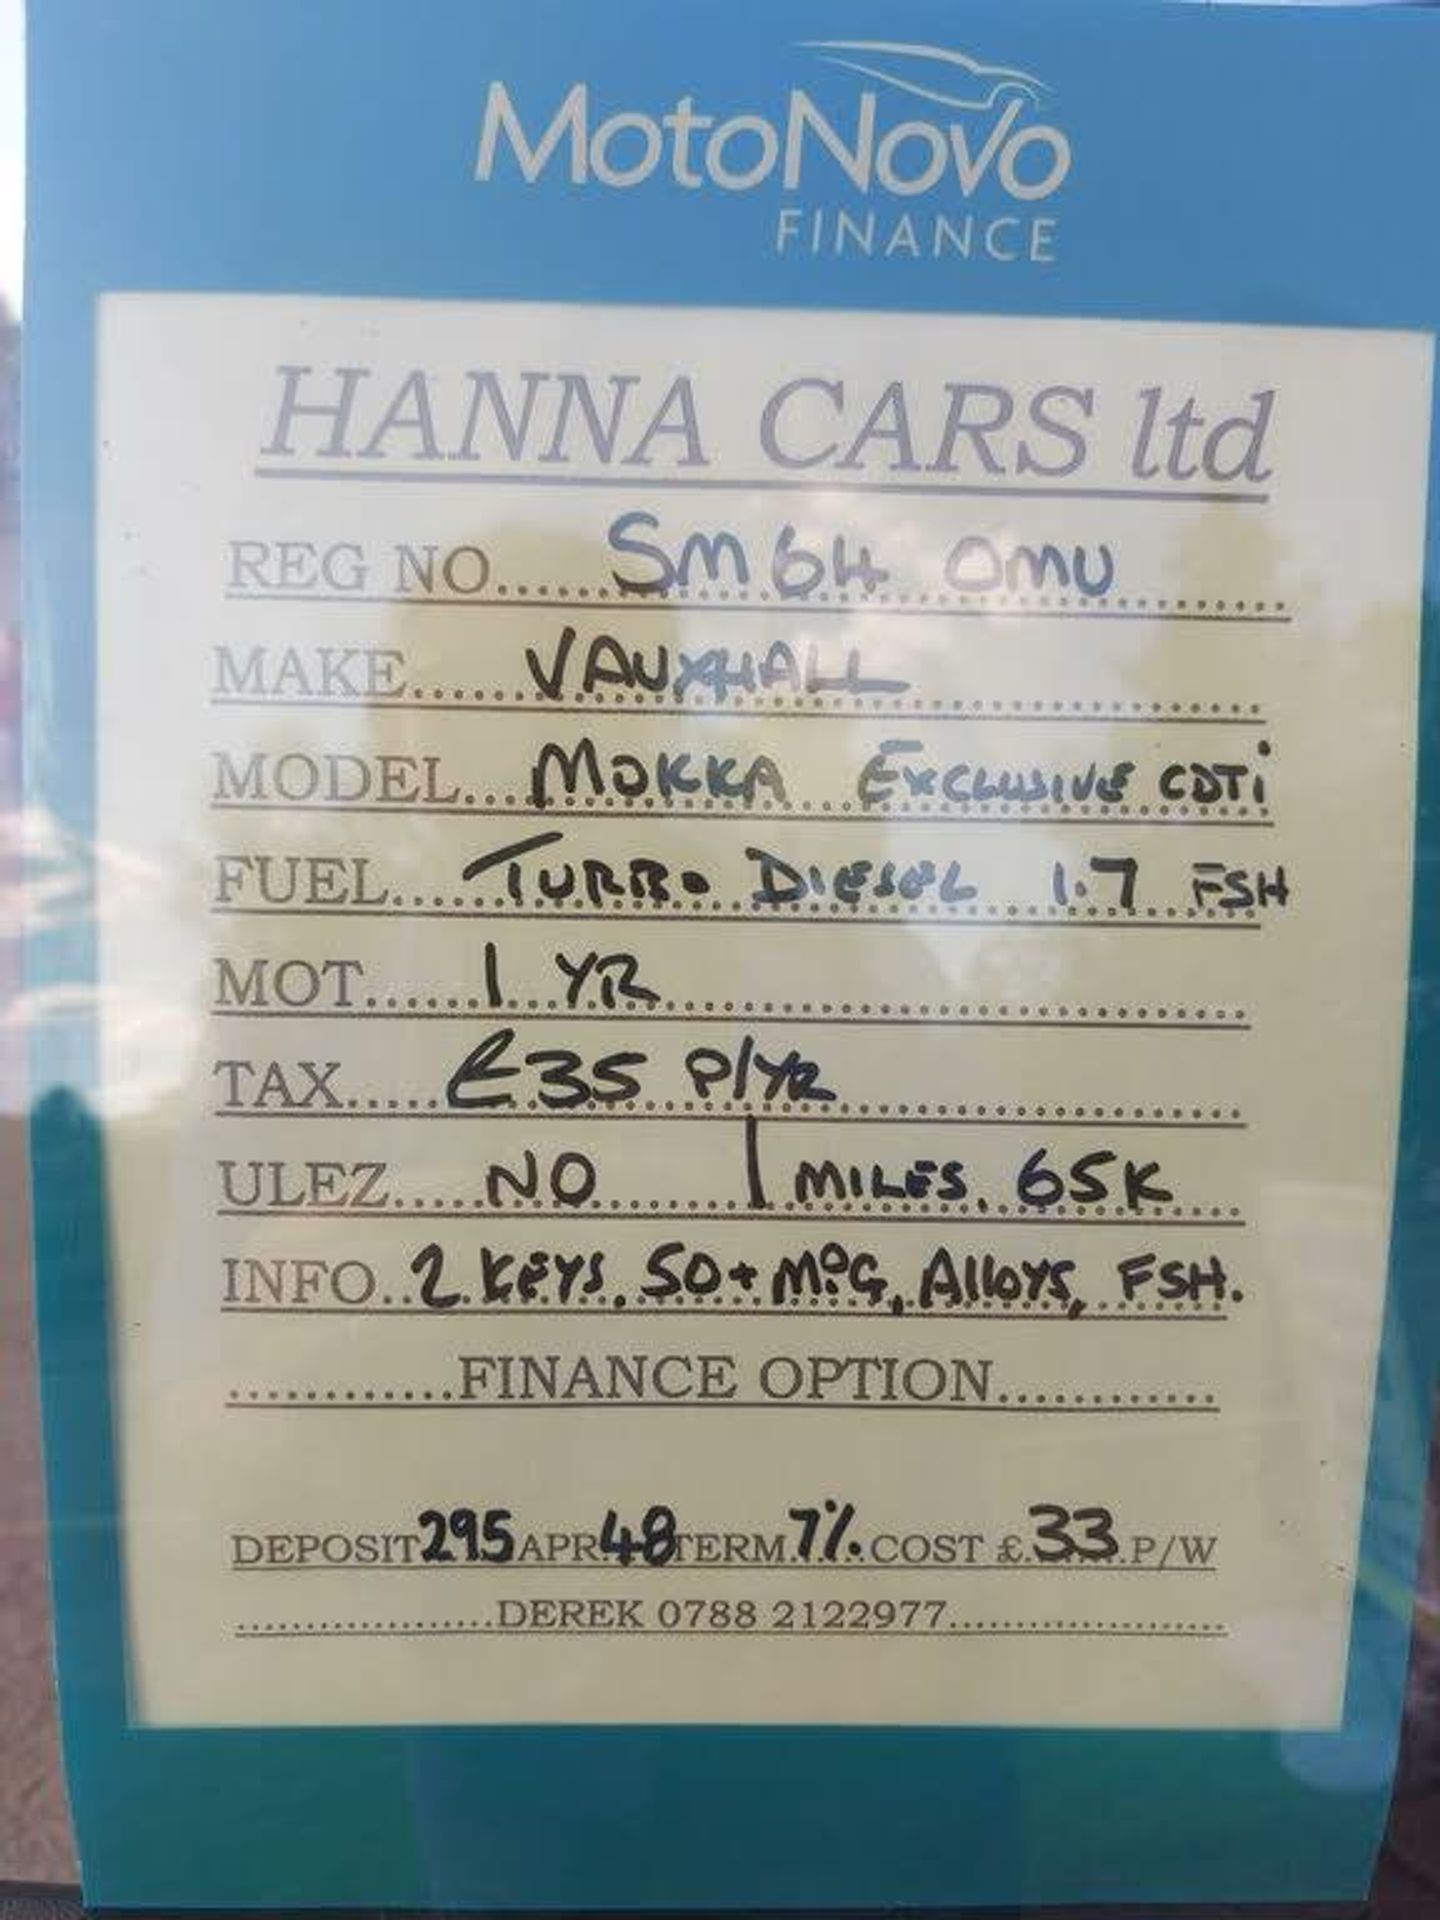 MotoNovo
FINANCE
HANNA CARS ltd
REG NO...... SM64 OMU
MAKE...... VAUXHALL
MODEL... MOKKA EXCLUSIVE CDTi
FUEL.... TURBO DIESEL 1.7 FSH
MOT...... 1 YR
TAX..... £35 P/YR
ULEZ..... NO | MILES. 65K
INFO.. 2 KEYS, 50+ MPG, Alloys, FSH.
...........FINANCE OPTION...........
DEPOSIT 295 APR 48 TERM 7% COST £ 33 P/W
..................DEREK 0788 2122977...................